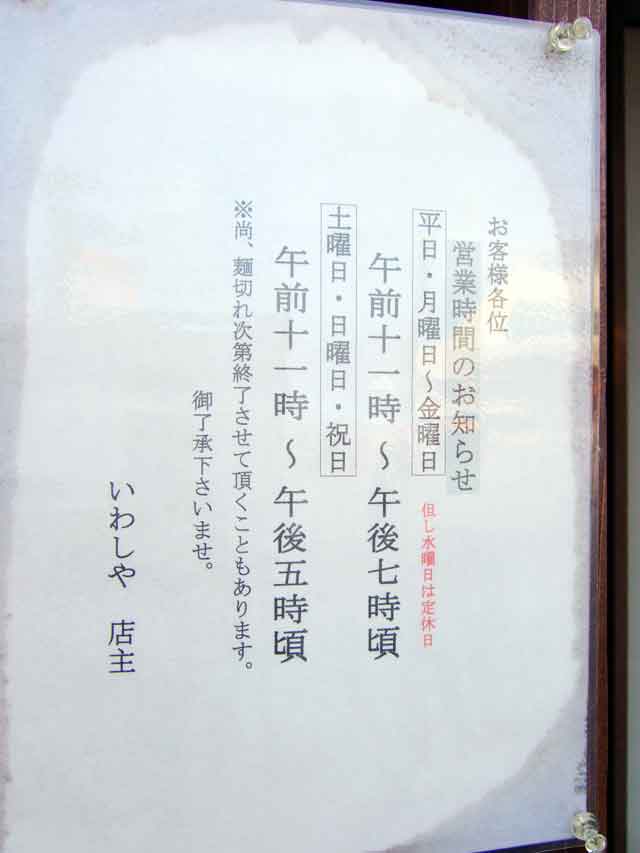 お客様各位
営業時間のお知らせ
平日・月曜日～金曜日
但し水曜日は定休日
午前十一時 ～ 午後七時頃
土曜日・日曜日・祝日
午前十一時 ～ 午後五時頃
※尚、麺切れ次第終了させて頂くこともあります。
御了承下さいませ。
いわしや 店主